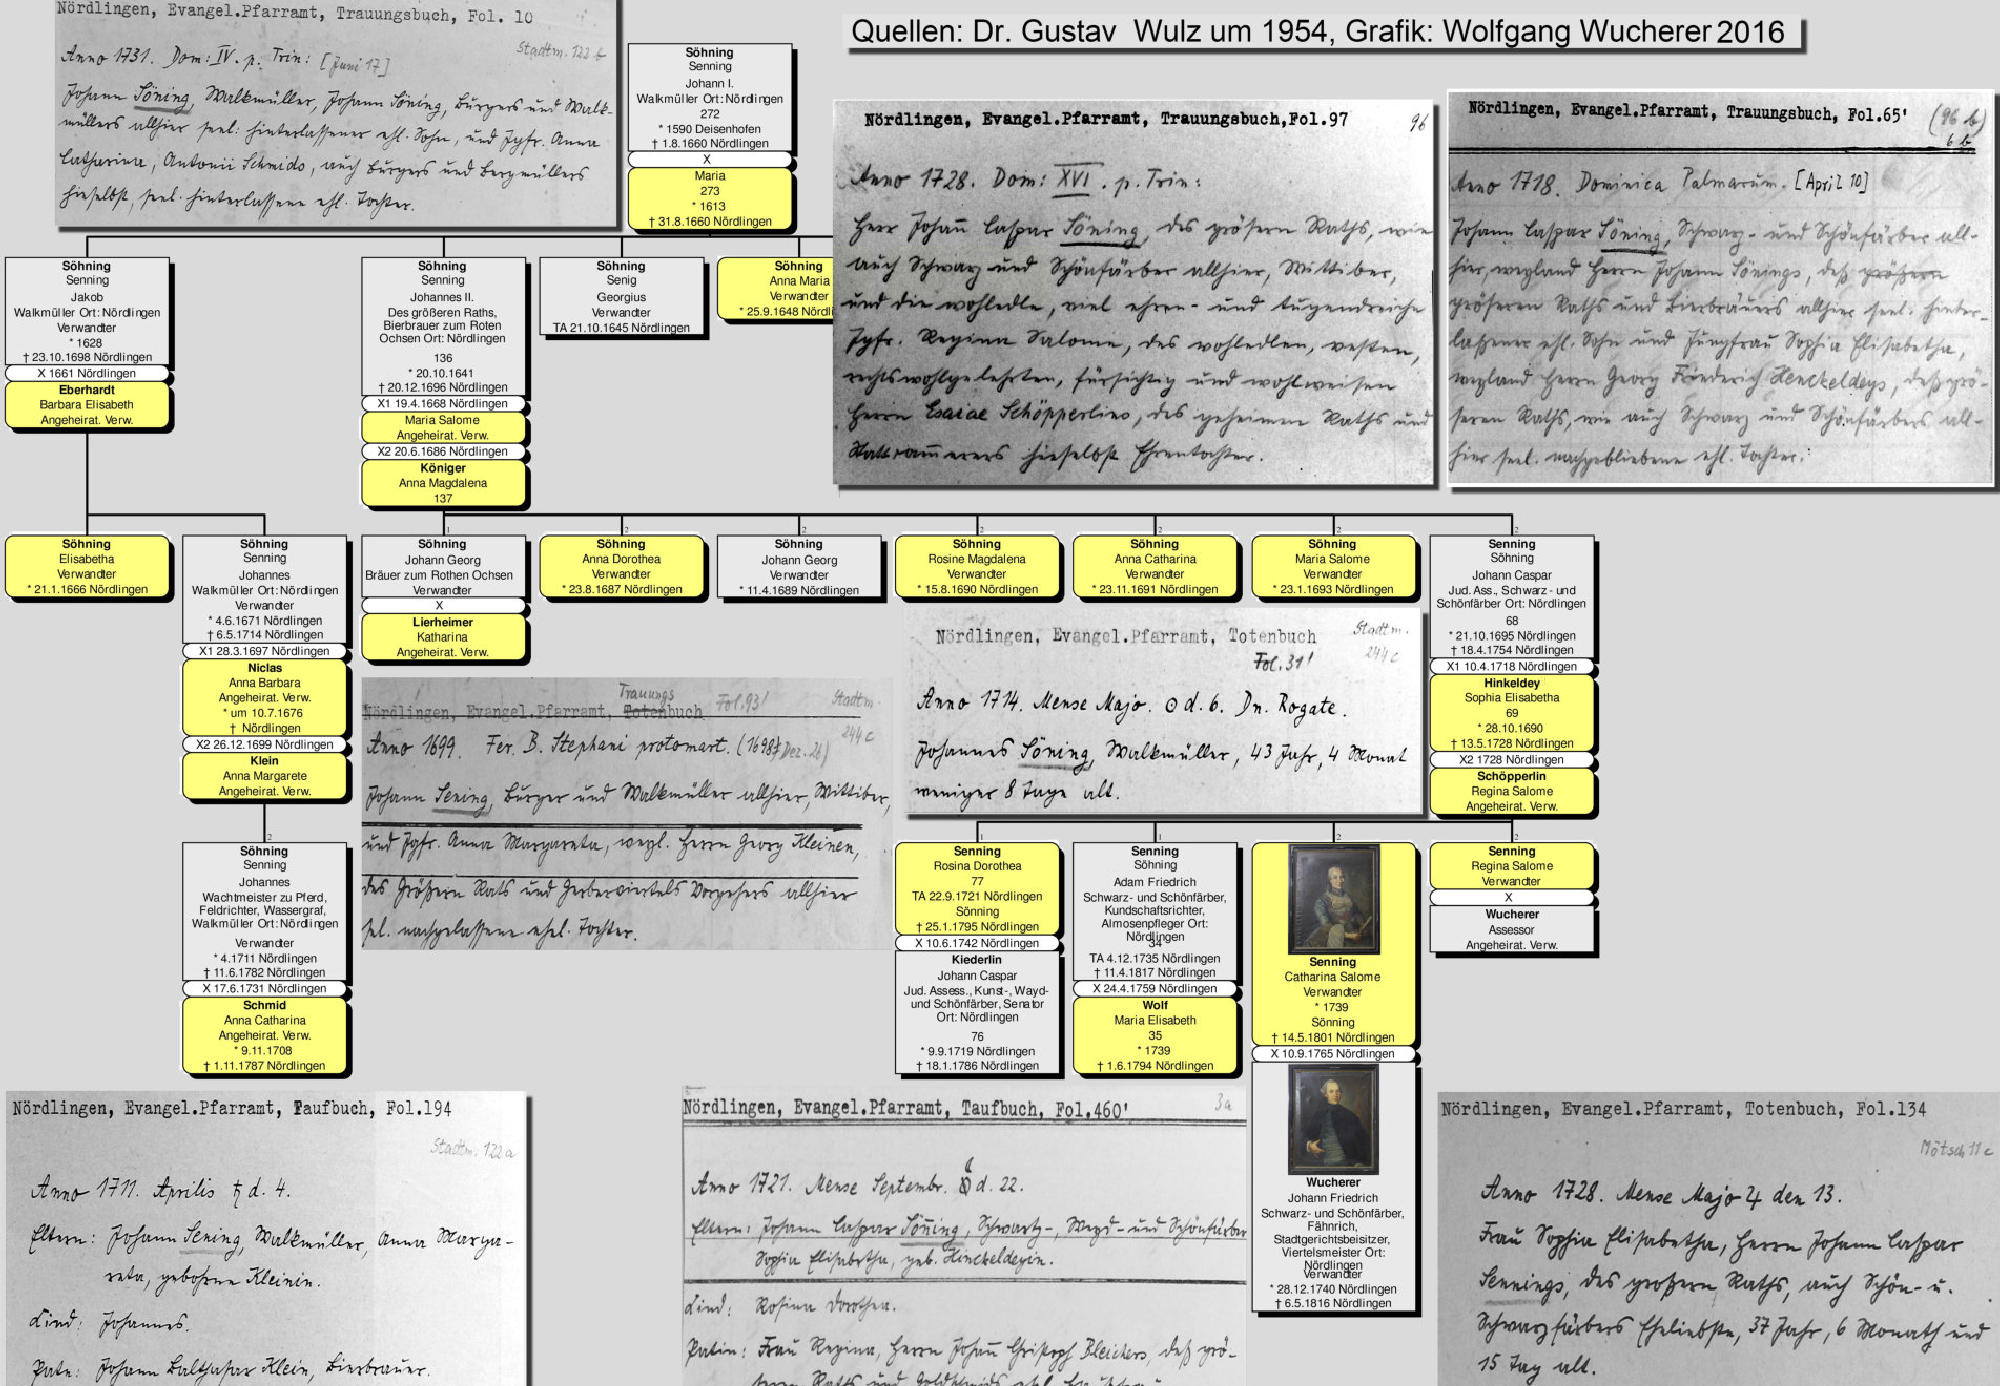 Quellen: Dr. Gustav Wulz um 1954, Grafik: Wolfgang Wucherer 2016
Nördlingen, Evangel.Pfarramt, Trauungsbuch, Fol. 10
Stadtm. 122 b
Anno 1731. Dom: IV. p. Trin: [Juni 17]
Johann Söning, Walkmüller, Johann Söning, Burgers und Walk-
müllers allhier seel: hinterlassener ehl. Sohn, und Jgfr. Anna
Catharina, Antonii Schmids, auch burgers und bergmüllers
hieselbst, seel. hinterlassene ehl. Tochter.
Söhning
Senning
Johann I.
Walkmüller Ort: Nördlingen
272
* 1590 Deisenhofen
† 1.8.1660 Nördlingen
X
Maria
273
* 1613
† 31.8.1660 Nördlingen
Nördlingen, Evangel.Pfarramt, Trauungsbuch,Fol.97
96
Anno 1728. Dom: XVI. p. Trin:
Herr Johann Caspar Söning, des grösern Raths, wie
auch Schwarz und Schönfärber allhier, Wittiber,
und die wohledle, viel ehren- und tugendreiche
Jgfr. Regina Salome, des wohledlen, vesten,
rechtswohlgelehrten, fürsichtig und wohlweisen
Herrn Esaiae Schöpperlins, des geheimen Raths und
Stattcammerers hieselbst Ehrentochter.
Nördlingen, Evangel.Pfarramt, Trauungsbuch, Fol.65'
(96 b)
6 b
Anno 1718. Dominica Palmarum. [April 10]
Johann Caspar Söning, Schwarz- und Schönfärber all-
hier, weyland Herrn Johann Sönings, deß größern
größeren Raths und Bierbräuers allhier seel. hinter-
laßener ehl. Sohn und Jungfrau Sophia Elisabetha,
weyland Herrn Georg Friederich Henckeldeys, deß grö-
seren Raths, wie auch Schwarz und Schönfärbers all-
hier seel. nachgebliebene ehl. Tochter.
Söhning
Senning
Jakob
Walkmüller Ort: Nördlingen
Verwandter
* 1628
† 23.10.1698 Nördlingen
X 1661 Nördlingen
Eberhardt
Barbara Elisabeth
Angeheirat. Verw.
Söhning
Senning
Johannes II.
Des größeren Raths,
Bierbrauer zum Roten
Ochsen Ort: Nördlingen
136
* 20.10.1641
† 20.12.1696 Nördlingen
X1 19.4.1668 Nördlingen
Maria Salome
Angeheirat. Verw.
X2 20.6.1686 Nördlingen
Königer
Anna Magdalena
137
Söhning
Senig
Georgius
Verwandter
TA 21.10.1645 Nördlingen
Söhning
Anna Maria
Verwandter
* 25.9.1648 Nördli
Söhning
Elisabetha
Verwandter
* 21.1.1666 Nördlingen
Söhning
Senning
Johannes
Walkmüller Ort: Nördlingen
Verwandter
* 4.6.1671 Nördlingen
† 6.5.1714 Nördlingen
X1 28.3.1697 Nördlingen
Niclas
Anna Barbara
Angeheirat. Verw.
* um 10.7.1676
† Nördlingen
X2 26.12.1699 Nördlingen
Klein
Anna Margarete
Angeheirat. Verw.
1
Söhning
Johann Georg
Bräuer zum Rothen Ochsen
Verwandter
X
Lierheimer
Katharina
Angeheirat. Verw.
2
Söhning
Anna Dorothea
Verwandter
* 23.8.1687 Nördlingen
2
Söhning
Johann Georg
Verwandter
* 11.4.1689 Nördlingen
2
Söhning
Rosine Magdalena
Verwandter
* 15.8.1690 Nördlingen
2
Söhning
Anna Catharina
Verwandter
* 23.11.1691 Nördlingen
2
Söhning
Maria Salome
Verwandter
* 23.1.1693 Nördlingen
2
Senning
Söhning
Johann Caspar
Jud. Ass., Schwarz- und
Schönfärber Ort: Nördlingen
68
* 21.10.1695 Nördlingen
† 18.4.1754 Nördlingen
X1 10.4.1718 Nördlingen
Hinkeldey
Sophia Elisabetha
69
* 28.10.1690
† 13.5.1728 Nördlingen
X2 1728 Nördlingen
Schöpperlin
Regina Salome
Angeheirat. Verw.
Trauungs
Nördlingen, Evangel.Pfarramt, Totenbuch Fol.93'
Stadtm.
244 c
Anno 1699. Fer. B. Stephani protomart. (1698 Dez. 26)
Johann Sening, burger und Walkmüller allhier, Wittiber,
und Jgfr. Anna Margareta, weyl. Herrn Georg Kleinen,
des Größern Rats und Gerberviertels Vorgehers allhier
sel. nachgelassene ehel. Tochter.
Nördlingen, Evangel.Pfarramt, Totenbuch
Fol.31'
Stadtm.
244 c
Anno 1714. Mense Majo. ⊙ d. 6. Dn. Rogate.
Johannes Söning, Walkmüller, 43 Jahr, 4 Monat
weniger 8 Tage alt.
2
Söhning
Senning
Johannes
Wachtmeister zu Pferd,
Feldrichter, Wassergraf,
Walkmüller Ort: Nördlingen
Verwandter
* 4.1711 Nördlingen
† 11.6.1782 Nördlingen
X 17.6.1731 Nördlingen
Schmid
Anna Catharina
Angeheirat. Verw.
* 9.11.1708
† 1.11.1787 Nördlingen
1
Senning
Rosina Dorothea
77
TA 22.9.1721 Nördlingen
Sönning
† 25.1.1795 Nördlingen
X 10.6.1742 Nördlingen
Kiederlin
Johann Caspar
Jud. Assess., Kunst-, Wayd-
und Schönfärber, Senator
Ort: Nördlingen
76
* 9.9.1719 Nördlingen
† 18.1.1786 Nördlingen
1
Senning
Söhning
Adam Friedrich
Schwarz- und Schönfärber,
Kundschaftsrichter,
Almosenpfleger Ort:
Nördlingen
34
TA 4.12.1735 Nördlingen
† 11.4.1817 Nördlingen
X 24.4.1759 Nördlingen
Wolf
Maria Elisabeth
35
* 1739
† 1.6.1794 Nördlingen
2
Senning
Catharina Salome
Verwandter
* 1739
Sönning
† 14.5.1801 Nördlingen
X 10.9.1765 Nördlingen
Wucherer
Johann Friedrich
Schwarz- und Schönfärber,
Fähnrich,
Stadtgerichtsbeisitzer,
Viertelsmeister Ort:
Nördlingen
Verwandter
* 28.12.1740 Nördlingen
† 6.5.1816 Nördlingen
2
Senning
Regina Salome
Verwandter
X
Wucherer
Assessor
Angeheirat. Verw.
Nördlingen, Evangel.Pfarramt, Taufbuch, Fol.194
Stadtm. 122 a
Anno 1711. Aprilis ♄ d. 4.
Eltern: Johann Sening, Walkmüller, Anna Marga-
reta, geborne Kleinin.
Kind: Johannes.
Pate: Johann Balthasar Klein, Bierbrauer.
Nördlingen, Evangel.Pfarramt, Taufbuch, Fol.460'
3a
Anno 1721. Mense Septembr. d. 22.
Eltern: Johann Caspar Söning, Schwartz-, Wayd- und Schönfärber
Sophia Elisabetha, geb. Hinckeldeyin.
Kind: Rosina Dorothea.
Patin: Frau Regina, Herrn Johann Christoph Bleichers, deß grö-
seren Raths und Goldschmids ehel.
Nördlingen, Evangel.Pfarramt, Totenbuch, Fol.134
Mötsch 11 c
Anno 1728. Mense Majo ♃ den 13.
Frau Sophia Elisabetha, Herrn Johann Caspar
Sennings, des großern Raths, auch Schön- u.
Schwarzfärbers Eheliebste, 37 Jahr, 6 Monath und
15 Tag alt.